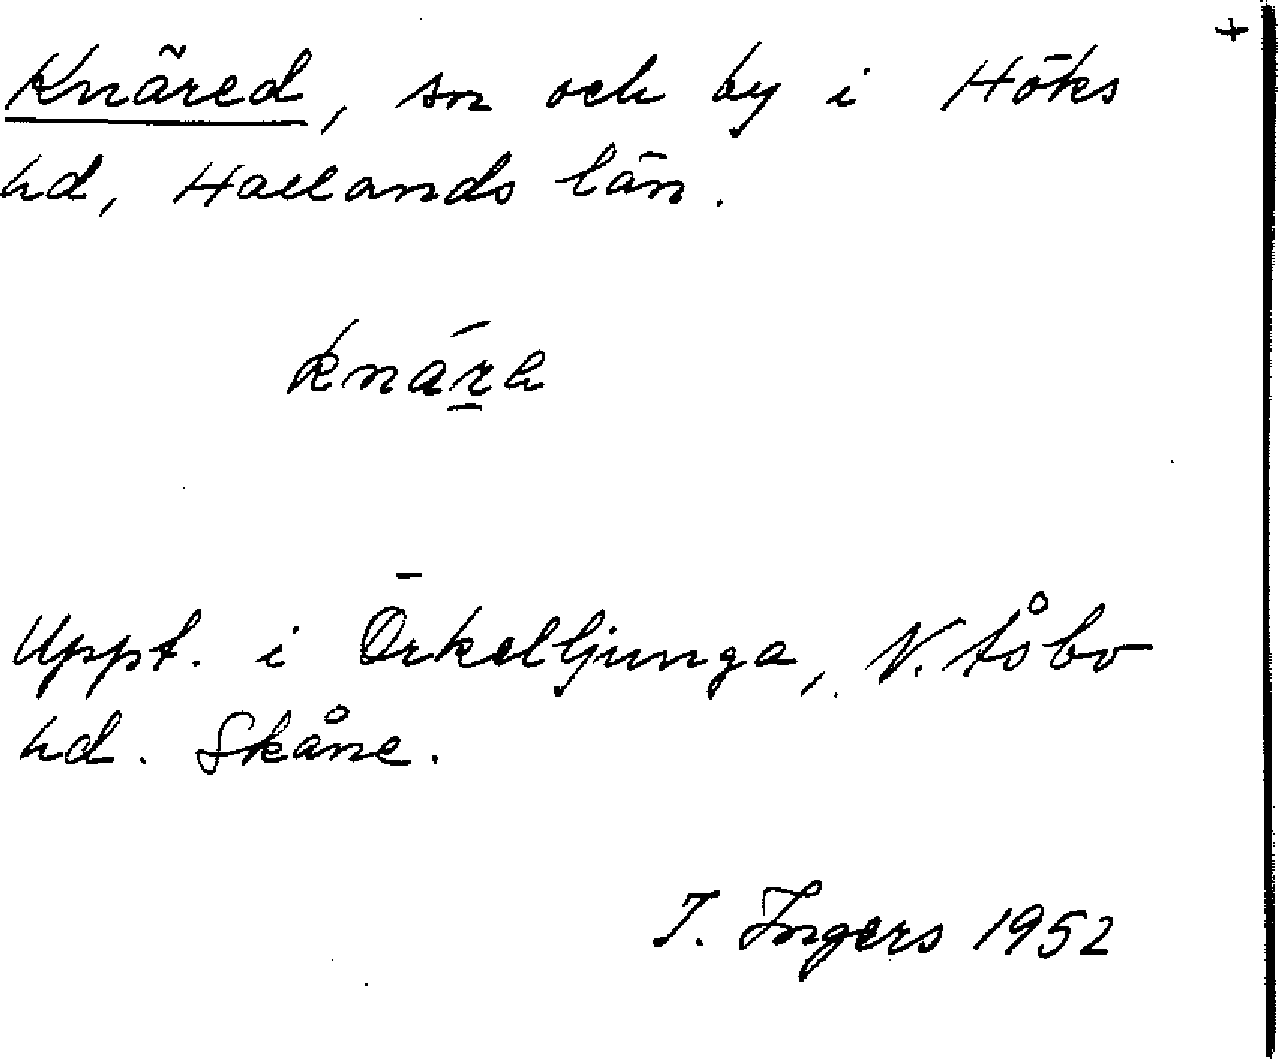 +
Knäred, sn och by i Höks
hd, Hallands län.
knára
Uppt. i Örkelljunga, N. Åsbo
hd. Skåne.
I. Ingers 1952